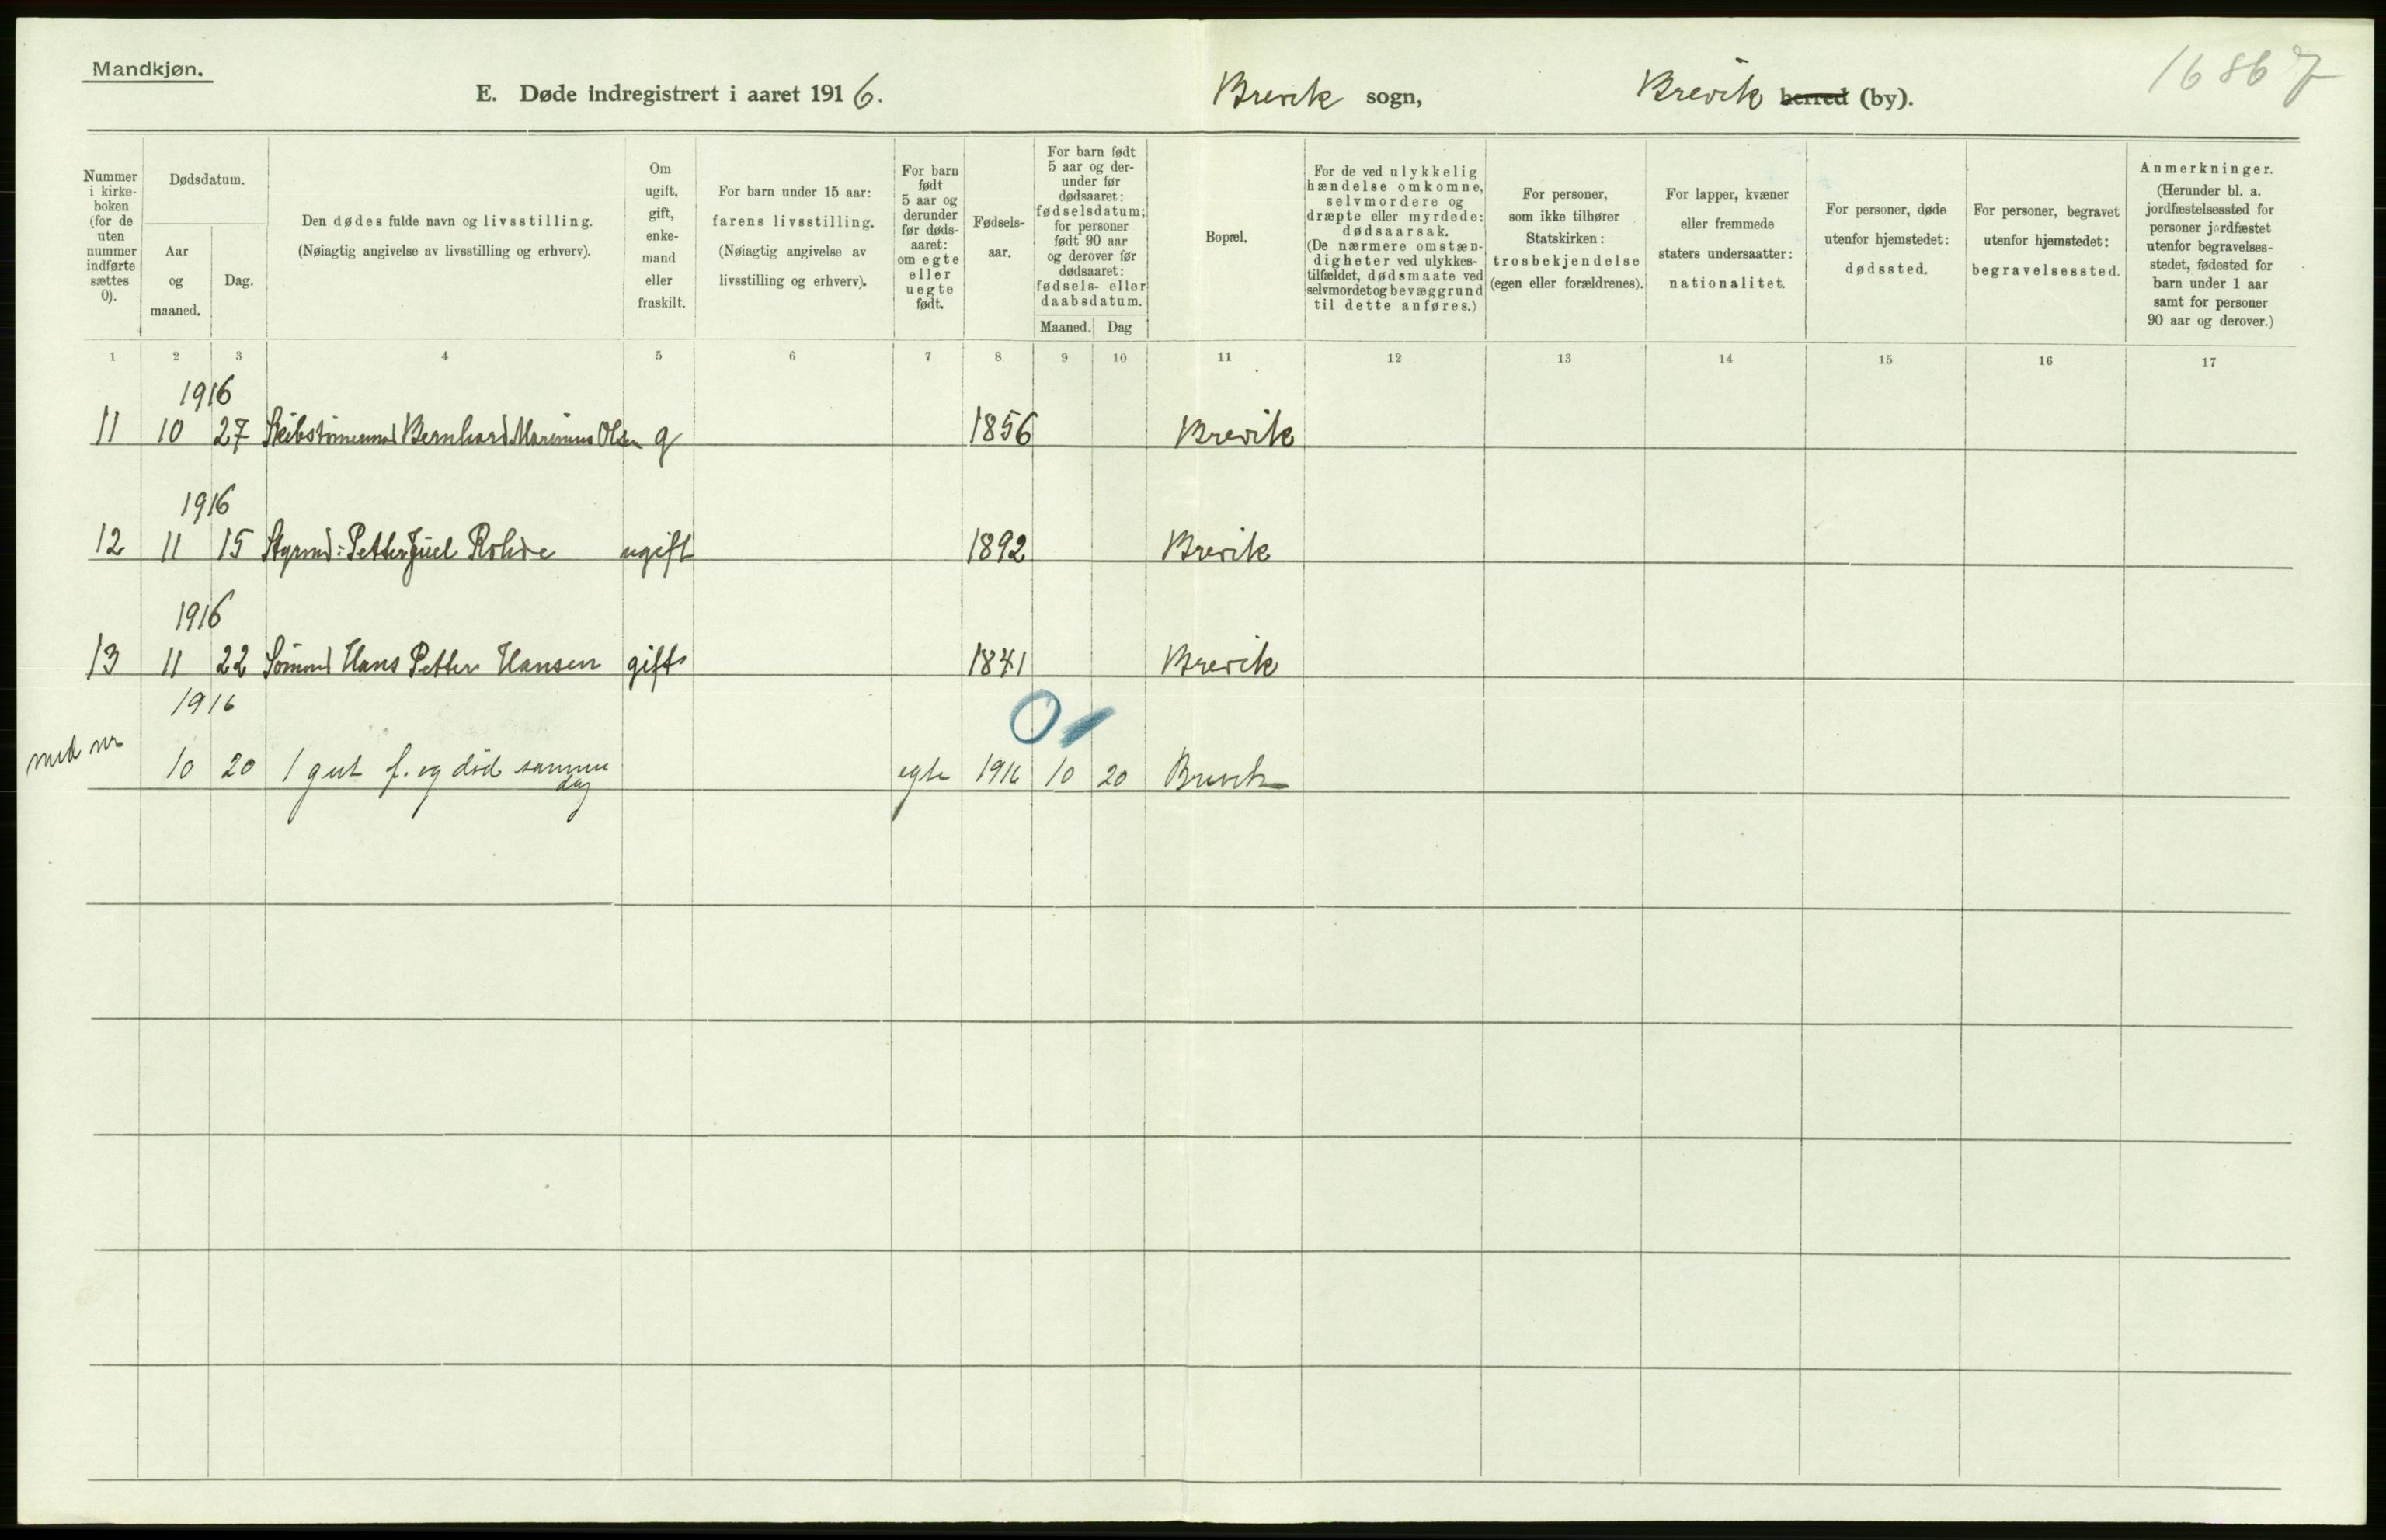 Mandkjøn.
16867
E. Døde indregistrert i aaret 1916. Brevik sogn, Brevik herred (by).
Nummer
i kirke-
boken
(for de
uten
nummer
indførte
sættes
0).
Dødsdatum.
Aar
og
maaned.
Dag.
Den dødes fulde navn og livsstilling.
(Nøiagtig angivelse av livsstilling og erhverv).
Om
ugift,
gift,
enke-
mand
eller
fraskilt.
For barn under 15 aar:
farens livsstilling.
(Nøiagtig angivelse av
livsstilling og erhverv).
For barn
født
5 aar og
derunder
før døds-
aaret:
om egte
eller
uegte
født.
Fødsels-
aar.
For barn født
5 aar og der-
under før
dødsaaret:
fødselsdatum;
for personer
født 90 aar
og derover før
dødsaaret:
fødsels- eller
daabsdatum.
Maaned. Dag
Bopæl.
For de ved ulykkelig
hændelse omkomne,
selvmordere og
dræpte eller myrdede:
dødsaarsak.
(De nærmere omstæn-
digheter ved ulykkes-
tilfældet, dødsmaate ved
selvmordet og bevæggrund
til dette anføres.)
For personer,
som ikke tilhører
Statskirken:
trosbekjendelse
(egen eller forældrenes).
For lapper, kvæner
eller fremmede
staters undersaatter:
nationalitet.
For personer, døde
utenfor hjemstedet:
dødssted.
For personer, begravet
utenfor hjemstedet:
begravelsessted.
Anmerkninger.
(Herunder bl. a.
jordfæstelsessted for
personer jordfæstet
utenfor begravelses-
stedet, fødested for
barn under 1 aar
samt for personer
90 aar og derover.)
1 2 3 4 5 6 7 8 9 10 11 12 13 14 15 16 17
1916
11 10 27 Skibstømmermd Bernhard Marinius Olsen g 1856 Brevik
1916
12 11 15 Styrmd: Petter Juel Rohde ugift 1892 Brevik
1916
13 11 22 Sømmd Hans Petter Hansen gift 1841 Brevik
1916
0
10 20 1 gut f. og död samme egte 1916 10 20 Brevik
dag